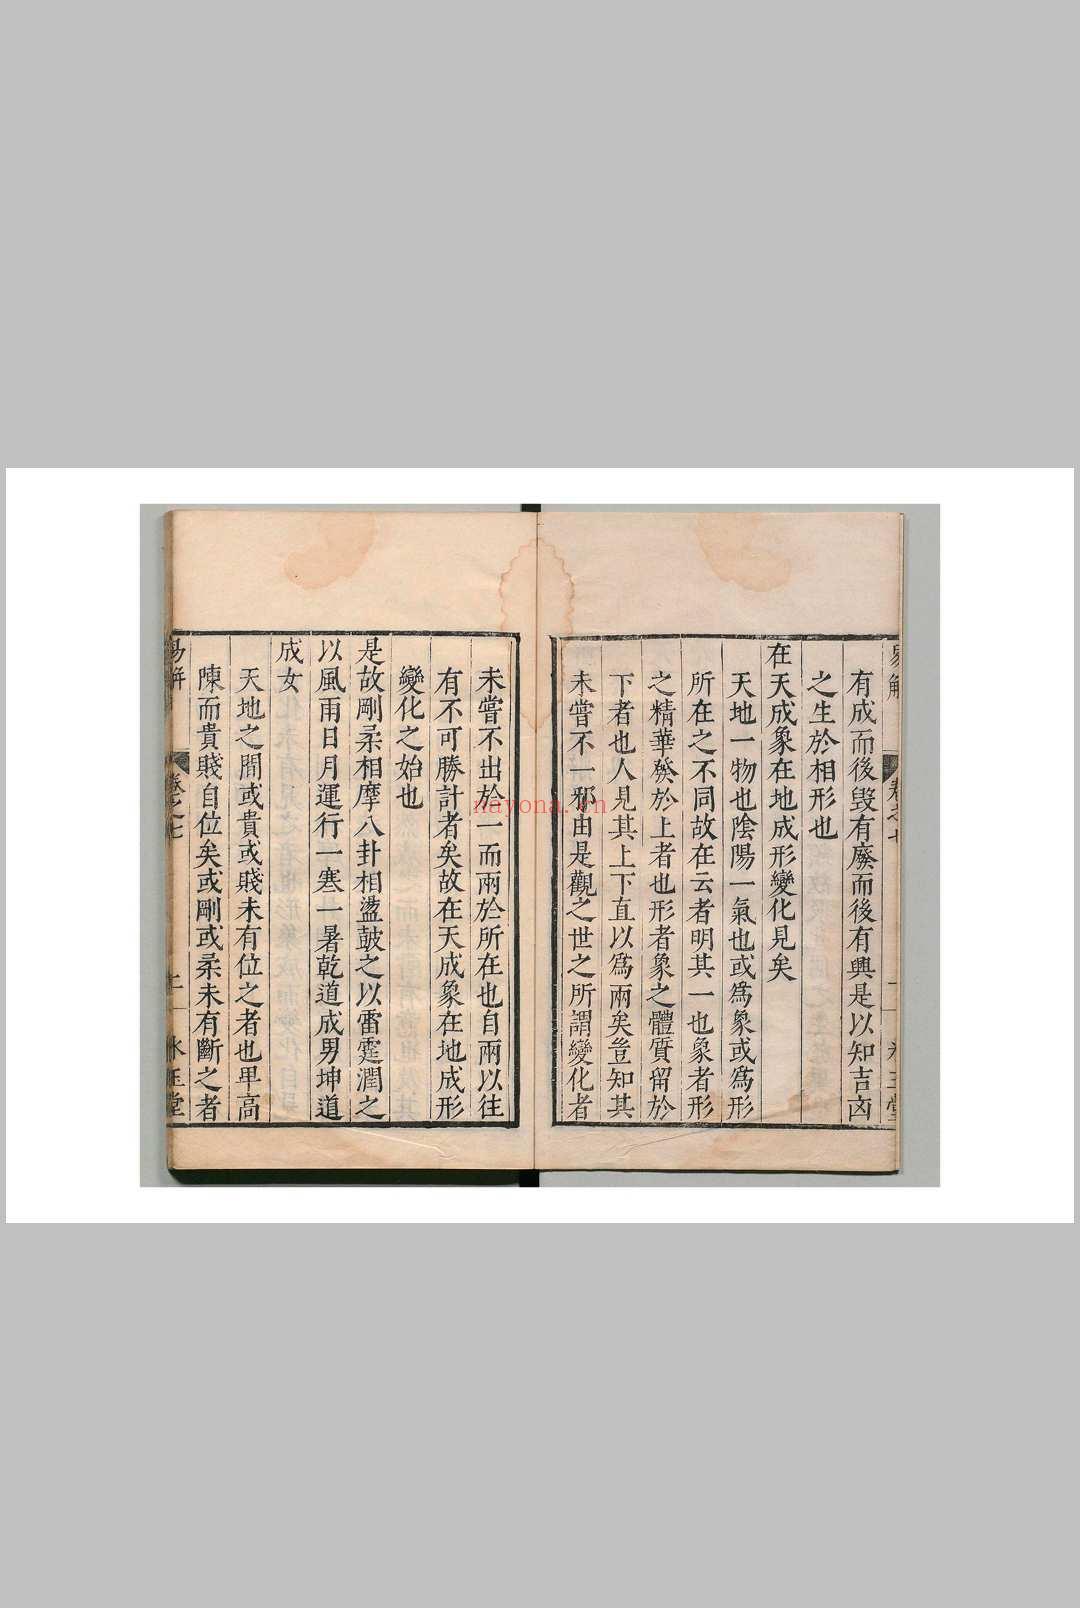 易解
卷之七
有成而後毁有廢而後有興是以知吉凶
之生於相形也
在天成象在地成形變化見矣
天地一物也陰陽一氣也或爲象或爲形
所在之不同故在云者明其一也象者形
之精華發於上者也形者象之體質留於
下者也人見其上下直以爲兩矣豈知其
未嘗不一邪由是觀之世之所謂變化者
未嘗不出於一而兩於所在也自兩以往
有不可勝計者矣故在天成象在地成形
變化之始也
是故剛柔相摩八卦相盪鼓之以雷霆潤之
以風雨日月運行一寒一暑乾道成男坤道
成女
天地之間或貴或賤未有位之者也卑高
陳而貴賤自位矣或剛或柔未有斷之者
易解
卷之七
冰玉堂
nayona.cn